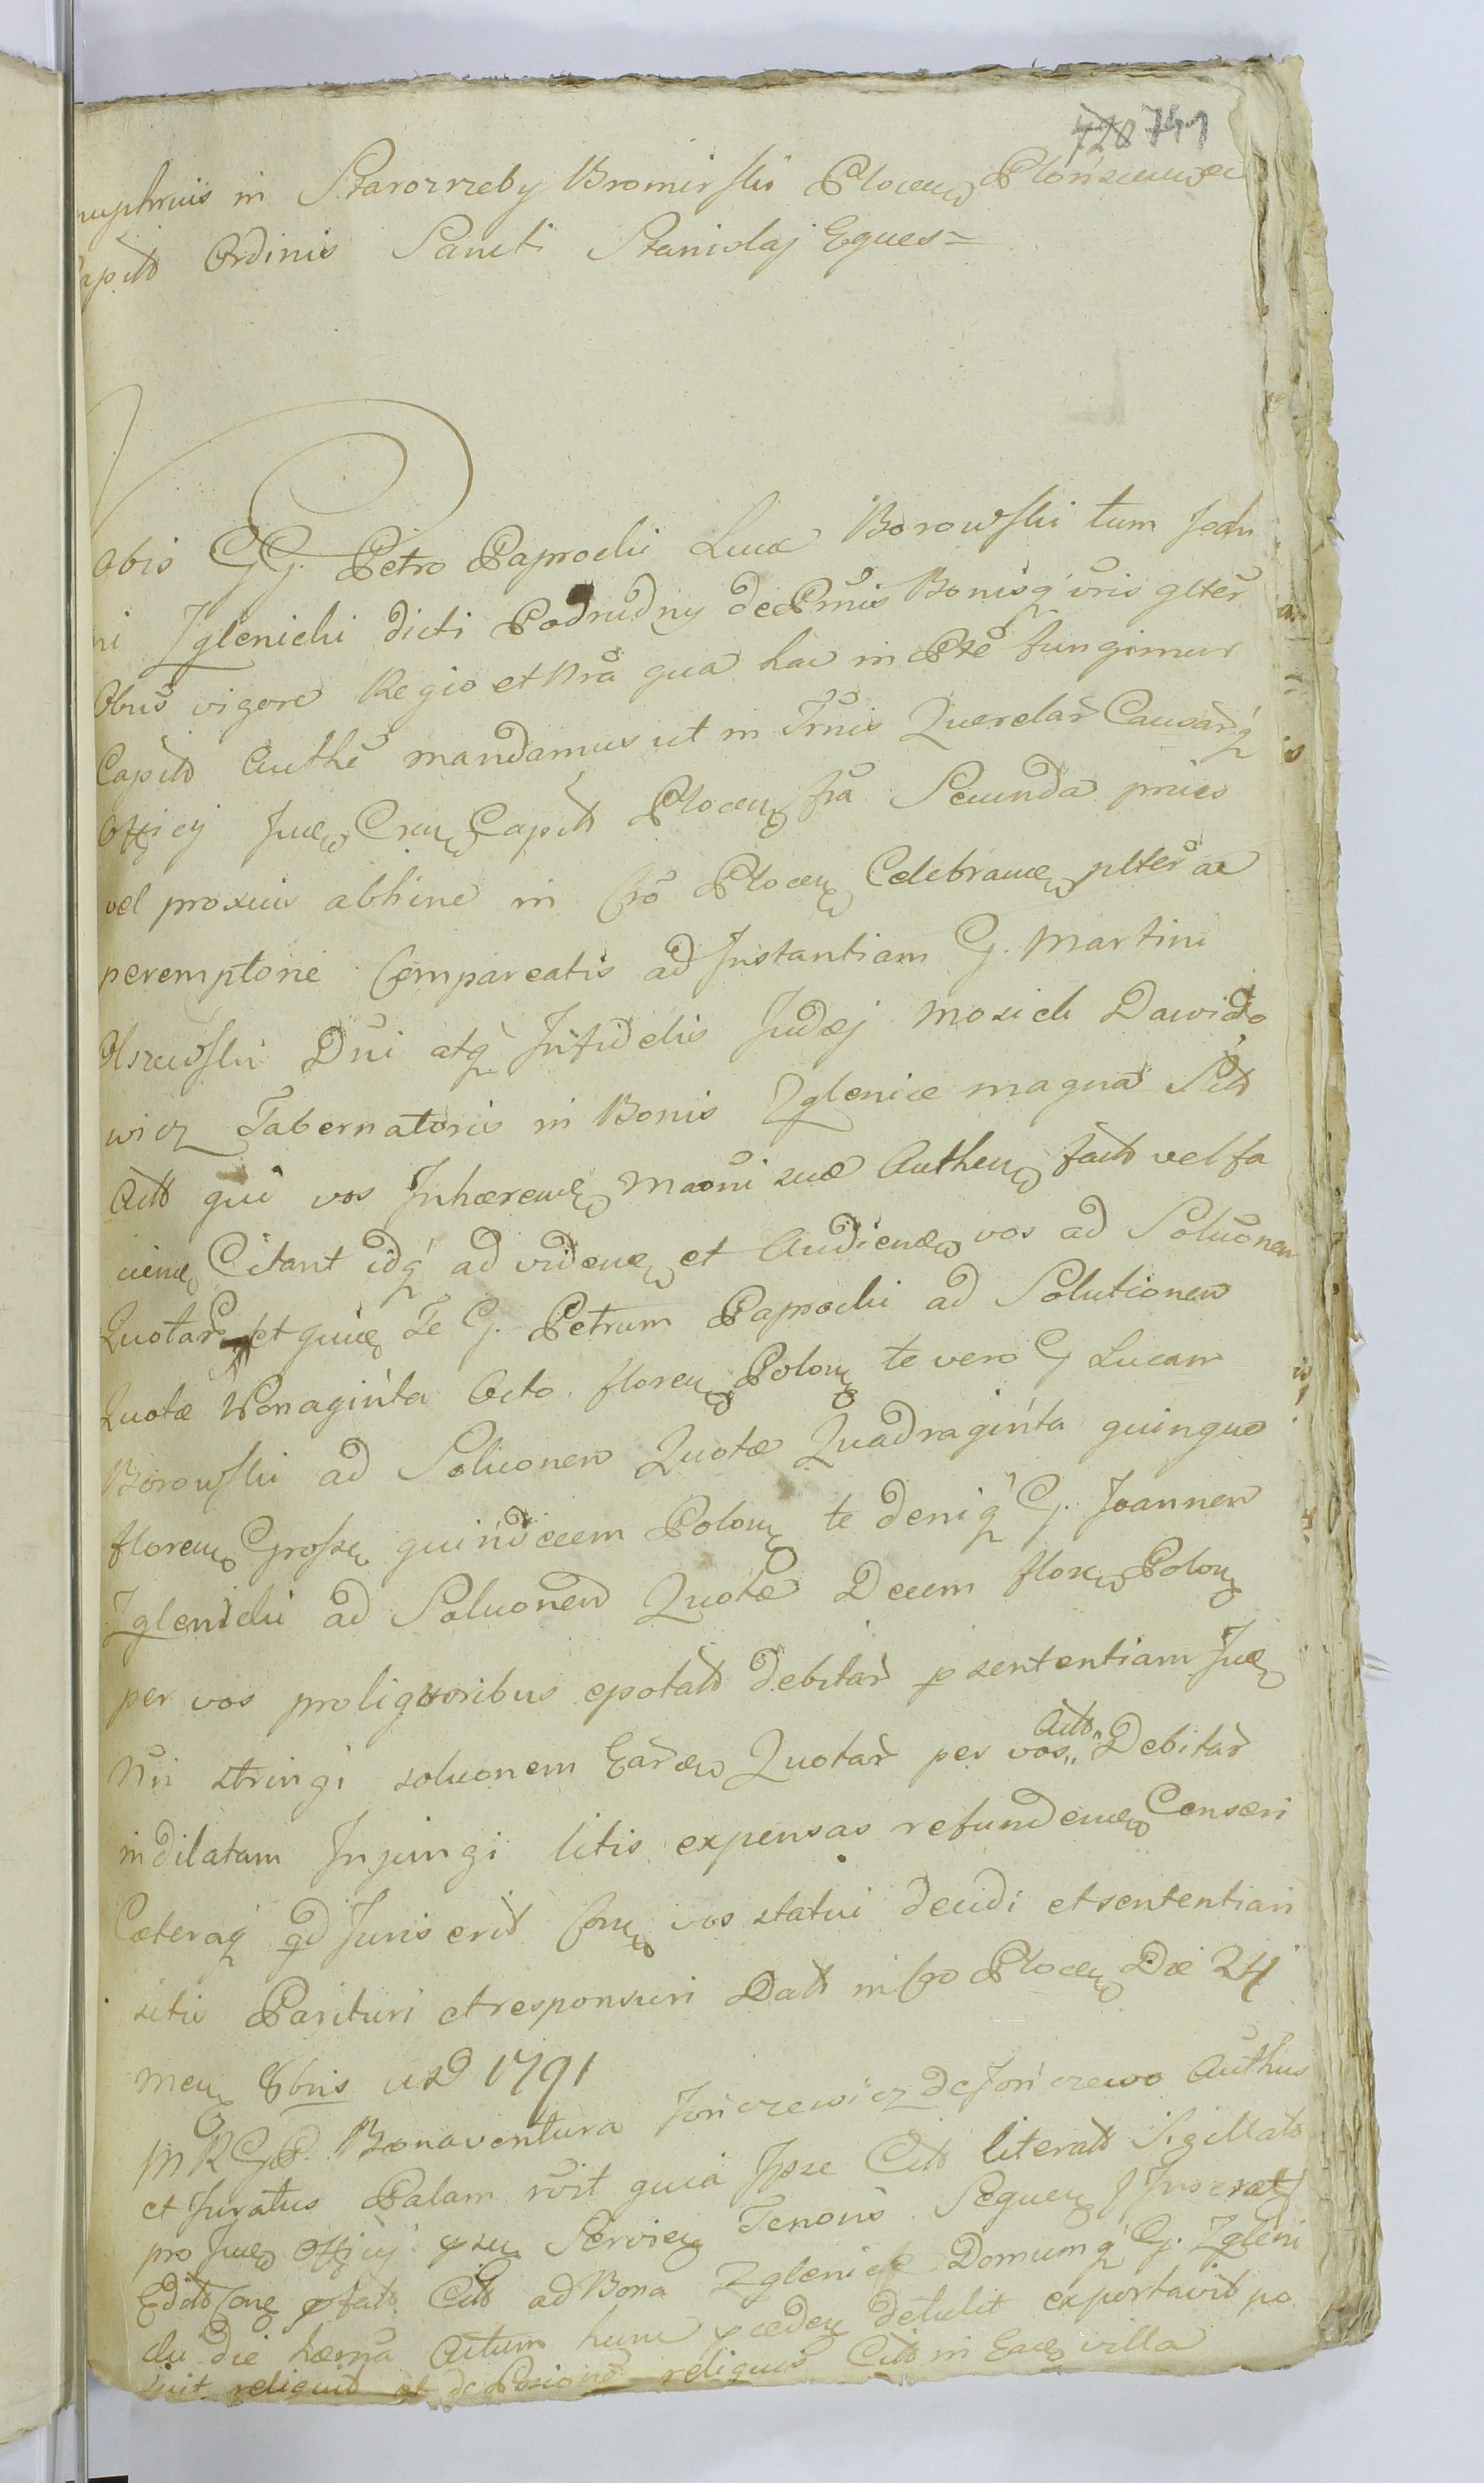 in Starorzeby Bromirski Plocen
Capit Ordinis Sancti Stanislaj Eques=
obis GG. Petro Paprocki Lucæ Borowski tum Joan
ni Zglenicki dicti Podrudny de Prmis Bonisq vris glter
Obus vigore Regia et Nra qua hac in Pte fungimur
Capit Authe mandamus ut in Trnis Querelar Causarq
Officij Capit Plocen fra Secunda pries
vel proxuis abhinc in Cro Plocen Celebran plter ac
peremptorie Compareatis ad Instantiam G. Martini
Olszewski Dni atq Infidelis Judæj Mosiek Dawido
wicz Tabernatoris in Bonis Zglenice magna Sit
Act qui vos Inhæren suæ Authen fact vel fa
cien Citant idq ad viden et Audien vos ad Soluonem
Quotar et quide Te G. Petrum Paprocki ad Solutionem
Quotæ Nonaginta Octo floren Polon te vero G Lucam
Borowski ad Soluonem Quotæ Quadraginta quinque
floren Grosse quindecem Polon te deniq G. Joannem
Zglenicki ad Soluonem Quotæ Decem flore Polon
per vos proliquoribus epotat debitar p sententiam
Nri stringi soluonem Ear Quotar per vos Act Debitar
indilatam Injungi litis expensas refunden Censeri
Cæteraq qd Juris erit Con vos statui decidi et sententiari
sitis Parituri et responsuri Dat in Cro Plocen Die 24
men 8bris A D 1791
M R G P. Bonaventura Jonczewicz de Jonczewo Authus
et Juratus Palam rvit quia Ipse Cit literat Sigillat
pro Officij Servien Tenoris Sequen Inserat
Edit Con pfat Cit ad Bona Zglenick Domumq G. Zgleni
cki die Actum hunc detulit exportavit po
suit reliquit et de reliquis Cit in villa